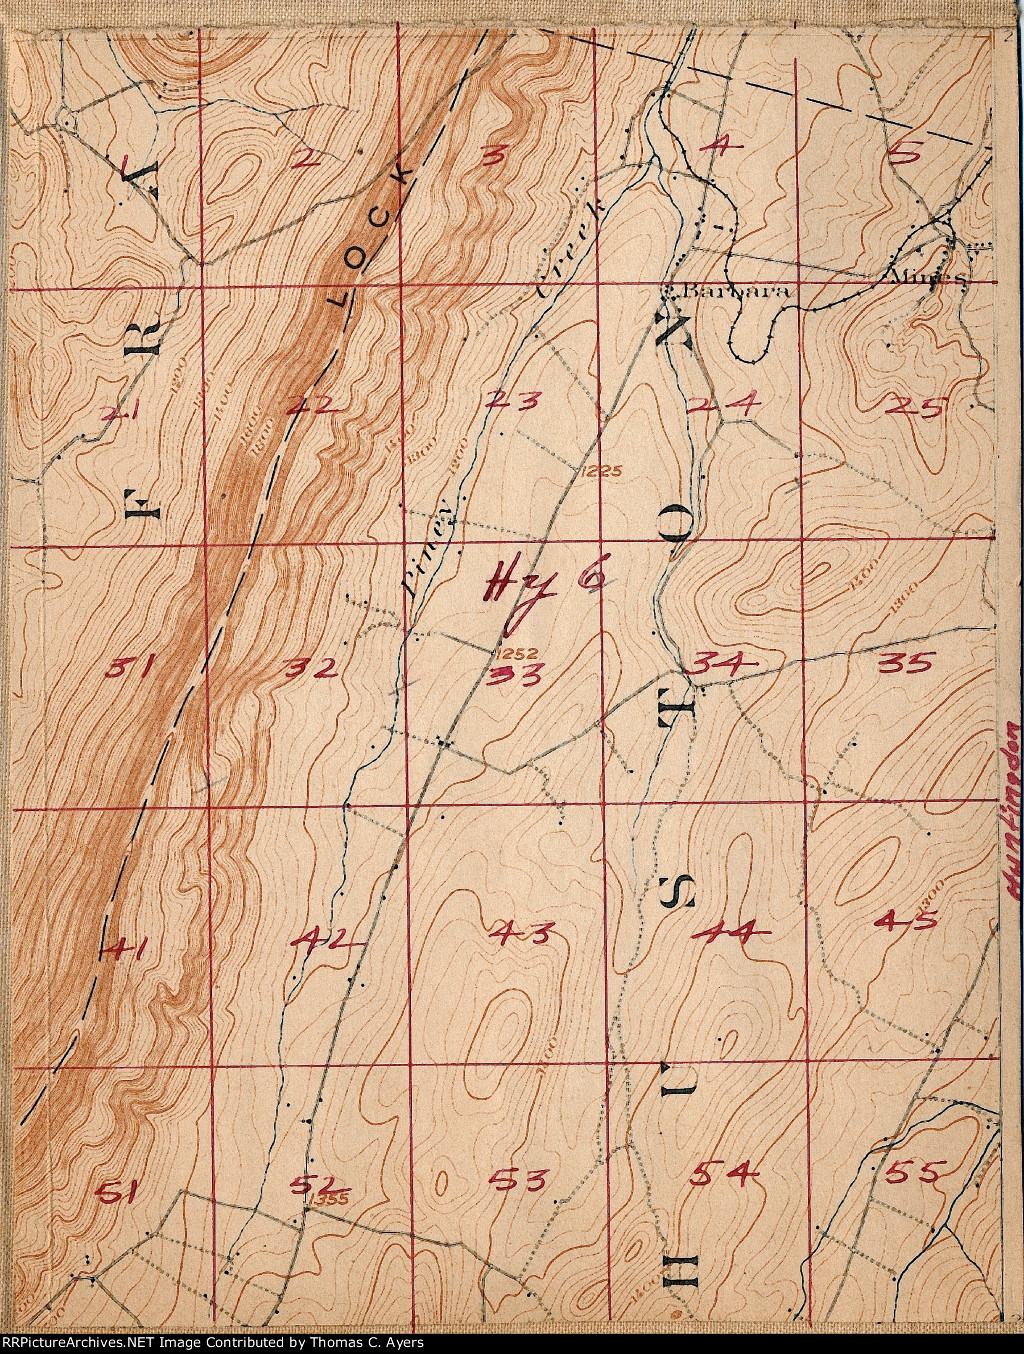 1 2 3 4 5
LOCK
Creek
Barbara
Mines
FRA
21 22 23 24 25
1200
1300
1225
Piney
Hy 6
1200
1300
31 32 33 34 35
1252
HUSTON
Huntingdon
41 42 43 44 45
1300
1300
51 52 53 54 55
1355
RRPictureArchives.NET Image Contributed by Thomas C. Ayers